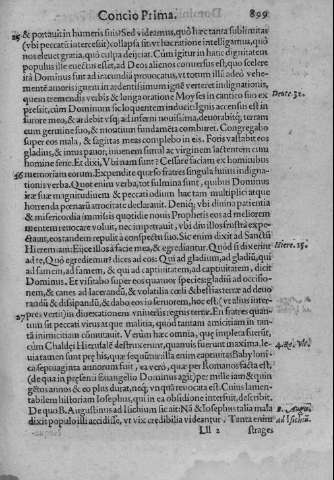 Concio Prima. 899
25 & portauit in humeris suis? Sed videamus, quò hæc tanta sublimitas
(vbi peccatũ intercessit) collapsa sit: vt hac ratione intelligamus, quò
nos eleuet gratia, quò culpa deijciat. Cùm igitur in hanc dignitatem
populus ille euectus esset, ad Deos alienos conuersus est, quo scelere
ita Dominus fuit ad iracundiã prouocatus, vt totum illũ adeò vehe-
mentẽ amoris ignem in ardentissimum ignẽ verteret indignationis,
quem tremendis verbis & longa oratione Moyses in cantico suo ex
pressit, cùm Dominum sic loquentem inducit: Ignis accensus est in
Deute. 32.
furore meo, & ardebit vsq; ad inferni nouissima, deuorabitq; terram
cum germine suo, & montium fundamẽta comburet. Congregabo
super eos mala, & sagittas meas complebo in eis. Foris vastabit eos
gladius, & intus pauor, iuuenem simul ac virginem lactentem cum
homine sene. Et dixi, Vbi nam sunt? Cessare faciam ex hominibus
26 memoriam eorum. Expendite quæso fratres singula huius indigna-
tionis verba. Quot enim verba, tot fulmina sunt, quibus Dominus
iræ suæ magnitudinem & peccati odium hac tam multiplici atque
horrenda pœnarũ atrocitate declarauit. Deniq; vbi diuina pietatis
& misericordia immissis quotidie nouis Prophetis eos ad meliorem
mentem reuocare voluit, nec impetrauit, vbi diu illos frustra expe-
ctauit, eos tandem repulit à conspectu suo. Sic enim dixit ad Sanctũ
Hieremiam: Eijce illos à facie mea, & egrediantur. Quòd si dixerint
Hiere. 15.
ad te, Quò egrediemur? dices ad eos: Qui ad gladium, ad gladiũ, qui
ad famem, ad famem, & qui ad captiuitatem, ad captiuitatem, dicit
Dominus. Et visitabo super eos quatuor species: gladiũ ad occisio-
nem, & canes ad lacerandũ, & volatilia cœli & bestias terræ ad deuo
randũ & dissipandũ, & dabo eos in feruorem, hoc est, (vt alius inter-
27 pres vertit) in diuexationem vniuersis regnis terræ. En fratres quan-
tum sit peccati virus atque malitia, quod tantam amicitiam in tan-
tã inimicitiam cõmutauit. Verùm hæc omnia, quæ implenda fuerũt,
cùm Chaldæi Hierusalẽ destruxerunt, quamuis fuerunt maxima, le-
4. Reg. Vlt.
uia tamen sunt præ his, quæ sequũtur. illa enim captiuitas Babyloni-
ca septuaginta annorum fuit, ea verò, quæ per Romanos facta est,
(de qua in præsenti Euangelio Dominus agit) per mille iam & quin
gẽtos annos & eo plus durat, neq; vnquã reuocata est. Cuius lamen-
tabilem historiam Iosephus, qui in ea obsidione interfuit, describit.
De quo B. Augustinus ad Isichium sic ait: Nã & Iosephus talia mala
B. Augu.
dixit populo illi accidisse, vt vix credibilia videantur. Tanta enim
ad Isichiũ.
Lll 2 strages